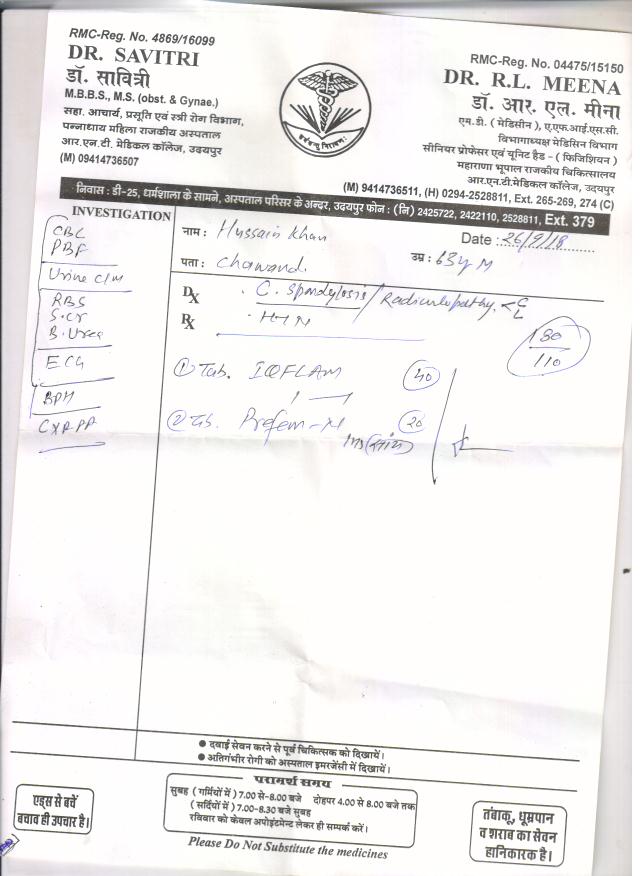 RMC-Reg. No. 4869/16099
DR. SAVITRI
डॉ. सावित्री
M.B.B.S., M.S. (obst. & Gynae.)
सहा. आचार्य, प्रसूति एवं स्त्री रोग विभाग,
पन्नाधाय महिला राजकीय अस्पताल
आर.एन.टी. मेडिकल कॉलेज, उदयपुर
(M) 09414736507
RMC-Reg. No. 04475/15150
DR. R.L. MEENA
डॉ. आर. एल. मीना
एम.डी. ( मेडिसीन ), ए.एफ.आई.एस.सी.
विभागाध्यक्ष मेडिसिन विभाग
सीनियर प्रोफेसर एवं यूनिट हैड - ( फिजिशियन )
महाराणा भूपाल राजकीय चिकित्सालय
आर.एन.टी.मेडिकल कॉलेज, उदयपुर
(M) 9414736511, (H) 0294-2528811, Ext. 265-269, 274 (C)
निवास : डी-25, धर्मशाला के सामने, अस्पताल परिसर के अन्दर, उदयपुर फोन : (नि) 2425722, 2422110, 2528811, Ext. 379
INVESTIGATION
CBC
PBF
Urine C/M
RBS
S.Cr
B.Urea
ECG
CXR PA
नाम : Hussain Khan
Date : 26/9/18
पता : Chawand.
उम्र : 63y M
Dx . C. Spondylosis / Radiculopathy.
Rx . HTN
180
110
① Tab. IQFLAM 40
1 — 1
② Tab. Prefem-M 20
● दवाई सेवन करने से पूर्व चिकित्सक को दिखायें।
● अतिगंभीर रोगी को अस्पताल इमरजेंसी में दिखायें।
एड्स से बचें
बचाव ही उपचार है।
परामर्श समय
सुबह ( गर्मियों में ) 7.00 से-8.00 बजे दोहपर 4.00 से 8.00 बजे तक
( सर्दियों में ) 7.00-8.30 बजे सुबह
रविवार को केवल अपोइंटमेन्ट लेकर ही सम्पर्क करें।
तंबाकू, धूम्रपान
व शराब का सेवन
हानिकारक है।
Please Do Not Substitute the medicines